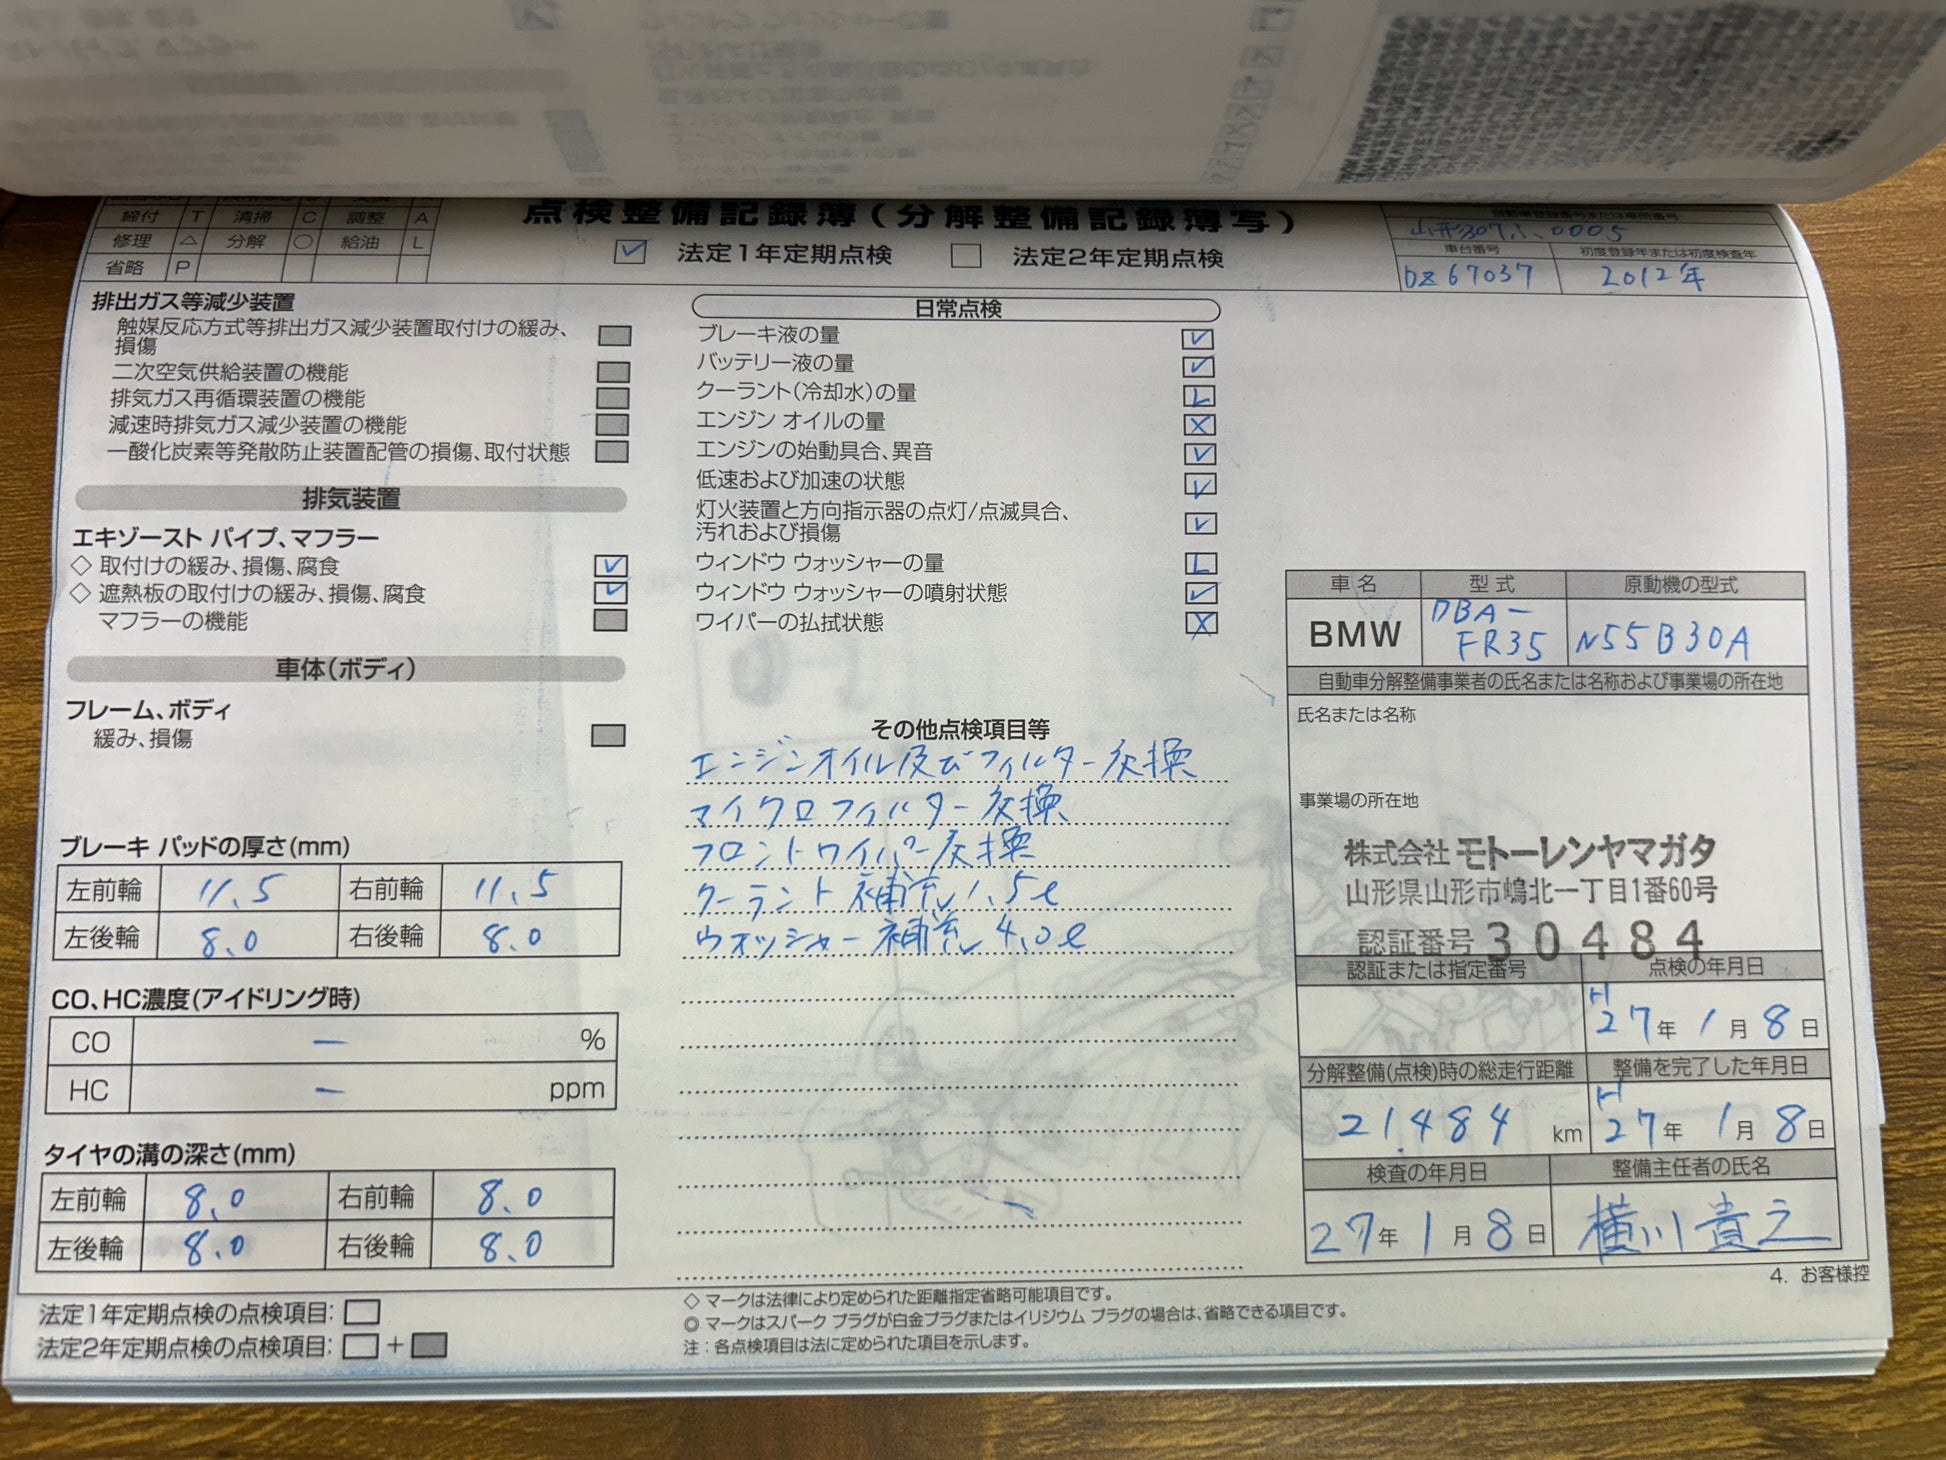 締付 T 清掃 C 調整 A
修理 △ 分解 ○ 給油 L
省略 P
点検整備記録簿(分解整備記録簿写)
法定1年定期点検 法定2年定期点検
自動車登録番号または車両番号
山形307ふ0005
車台番号 初度登録年または初度検査年
DZ67037 2012年
排出ガス等減少装置
触媒反応方式等排出ガス減少装置取付けの緩み、
損傷
二次空気供給装置の機能
排気ガス再循環装置の機能
減速時排気ガス減少装置の機能
一酸化炭素等発散防止装置配管の損傷、取付状態
排気装置
エキゾースト パイプ、マフラー
◇ 取付けの緩み、損傷、腐食
◇ 遮熱板の取付けの緩み、損傷、腐食
マフラーの機能
車体(ボディ)
フレーム、ボディ
緩み、損傷
ブレーキ パッドの厚さ(mm)
左前輪 11.5 右前輪 11.5
左後輪 8.0 右後輪 8.0
CO、HC濃度(アイドリング時)
CO ー %
HC ー ppm
タイヤの溝の深さ(mm)
左前輪 8.0 右前輪 8.0
左後輪 8.0 右後輪 8.0
法定1年定期点検の点検項目:
法定2年定期点検の点検項目: +
日常点検
ブレーキ液の量
バッテリー液の量
クーラント(冷却水)の量 L
エンジン オイルの量 X
エンジンの始動具合、異音
低速および加速の状態
灯火装置と方向指示器の点灯/点滅具合、
汚れおよび損傷
ウィンドウ ウォッシャーの量 L
ウィンドウ ウォッシャーの噴射状態
ワイパーの払拭状態 X
その他点検項目等
エンジンオイル及びフィルター交換
マイクロフィルター交換
フロントワイパー交換
クーラント補充 1.5ℓ
ウォッシャー補充 4.0ℓ
◇ マークは法律により定められた距離指定省略可能項目です。
◎ マークはスパーク プラグが白金プラグまたはイリジウム プラグの場合は、省略できる項目です。
注:各点検項目は法に定められた項目を示します。
車名 型式 原動機の型式
BMW DBA-FR35 N55B30A
自動車分解整備事業者の氏名または名称および事業場の所在地
氏名または名称
事業場の所在地
株式会社 モトーレンヤマガタ
山形県山形市嶋北一丁目1番60号
認証番号 30484
認証または指定番号 点検の年月日
H27年 1月 8日
分解整備(点検)時の総走行距離 整備を完了した年月日
21,484 km H27年 1月 8日
検査の年月日 整備主任者の氏名
27年 1月 8日 横川貴之
4. お客様控